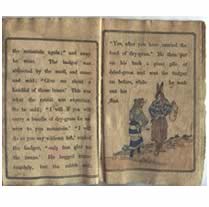 the mountain again;" and away
he went. The badger was
attracted by the smell, and came
and said: "Give me about a
handful of those beans." This was
what the rabbit was expecting.
So he said; "I will if you will
carry a bundle of dry-grass for
me to you mountain." "I will
do as you say without fail,"
the badger, "only first give me
the beans." He begged
but the rabbit said,
"Yes, after you have carried the
load of dry-grass." He then put
on his back a great pile of
dried-grass and the badger
on before, while he
out his
flint